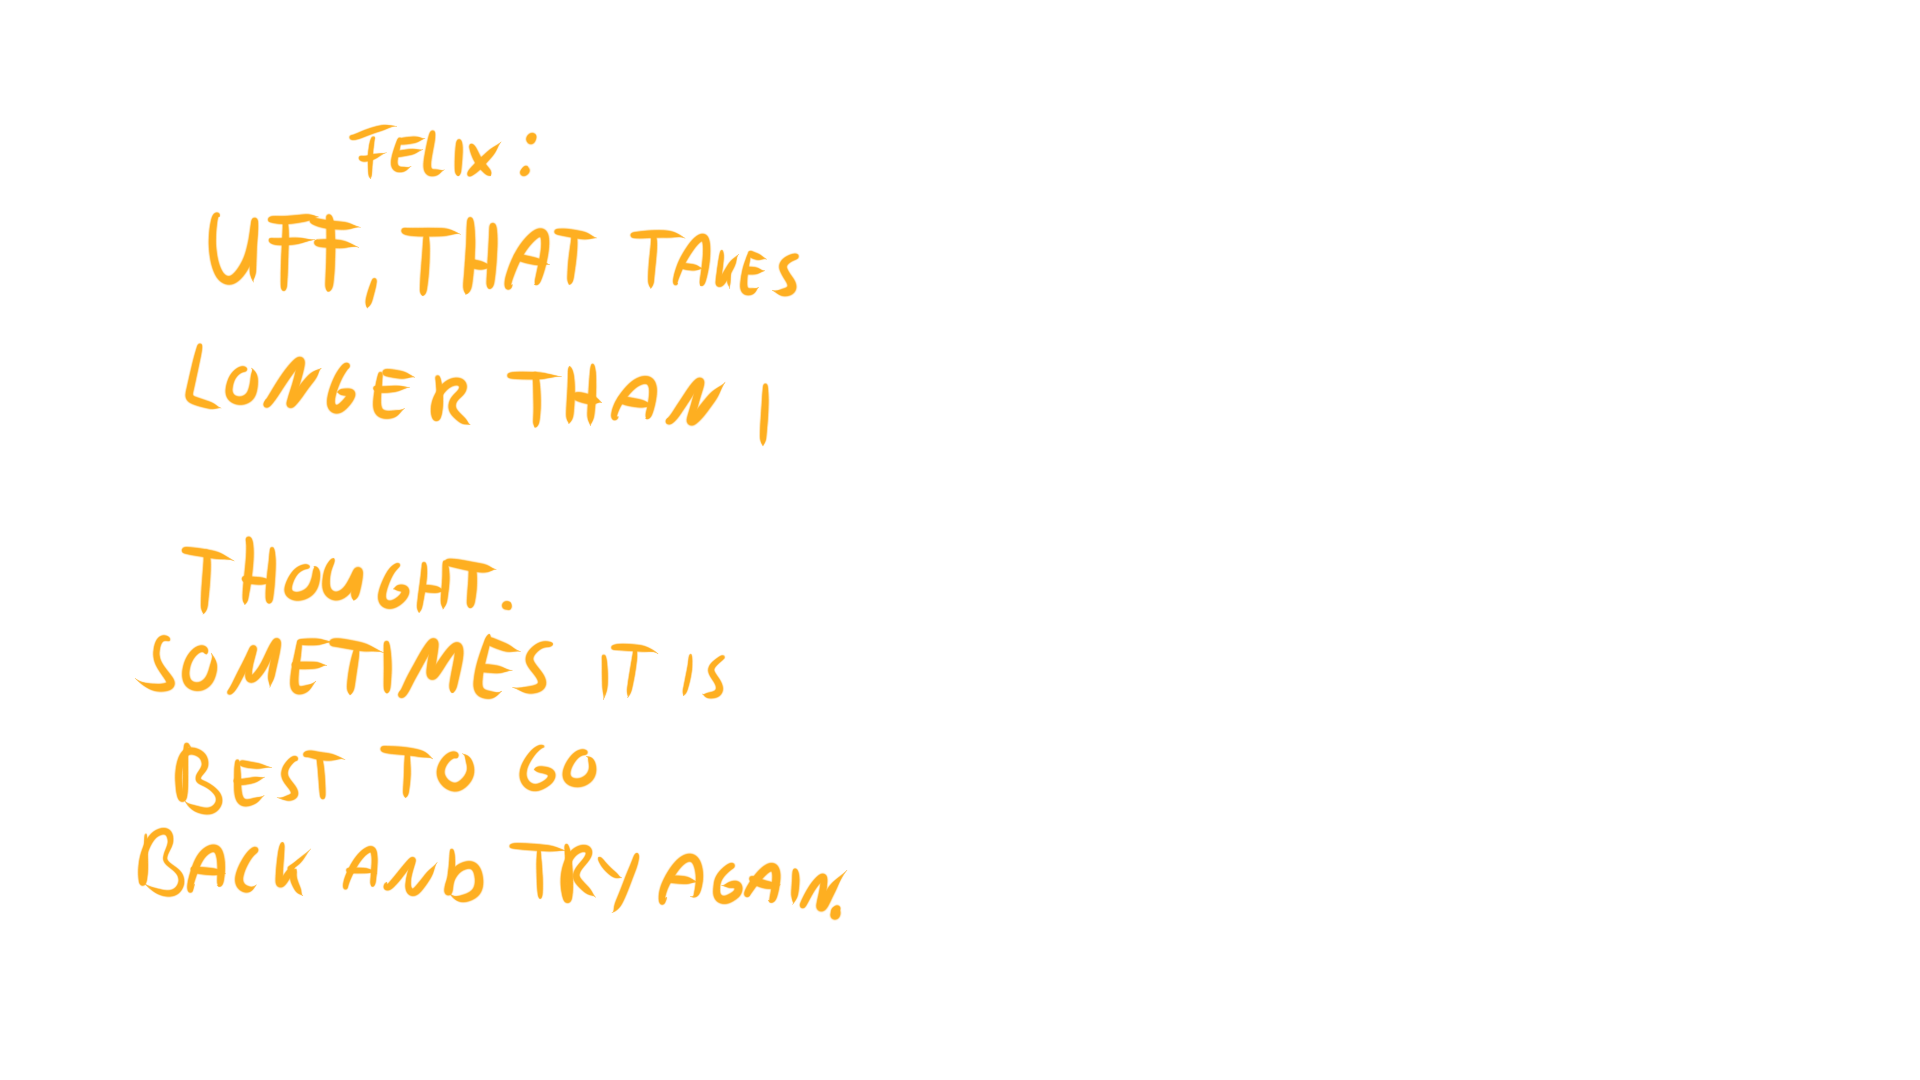 FELIX:
UFF, THAT TAKES
LONGER THAN I
THOUGHT.
SOMETIMES IT IS
BEST TO GO
BACK AND TRY AGAIN.